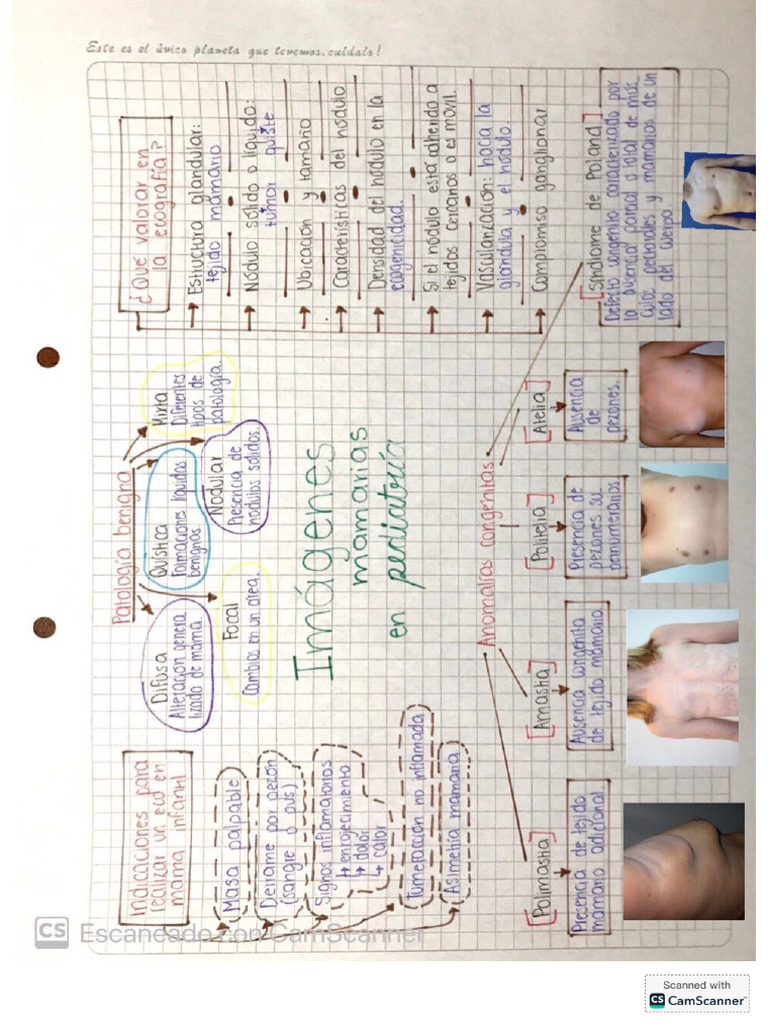 Este es el único planeta que tenemos, cuídalo!
Indicaciones para
realizar un eco en
mama infantil
Masa palpable
Derrame por pezón
(sangre o pus)
Signos inflamatorios
↳ enrojecimiento
↳ dolor
↳ calor
Tumefacción no inflamada
Asimetría mamaria
Patología benigna
Difusa
Alteración genera
lizada de mama.
Quística
Formaciones líquidas
benignas.
Mixta
Diferentes
tipos de
patología.
Focal
Cambios en un área.
Nodular
Presencia de
nódulos sólidos.
Imágenes
mamarias
en pediatría
¿Qué valorar en
la ecografía?
Estructura glandular:
tejido mamario
Nódulo sólido o líquido:
tumor quiste
Ubicación y tamaño
Características del nódulo
Densidad del nódulo en la
ecogenicidad.
Si el nódulo está adherido a
tejidos cercanos o es móvil.
Vascularización: hacia la
glándula y el nódulo.
Compromiso ganglionar
Anomalías congénitas
[Polimastia]
Presencia de tejido
mamario adicional.
[Amastia]
Ausencia congénita
de tejido mamario.
[Politelia]
Presencia de
pezones su
pernumerarios.
[Atelia]
Ausencia
de
pezones.
[Síndrome de Poland]
Defecto congénito caracterizado por
la ausencia parcial o total de mús
culos pectorales y mamarios de un
lado del cuerpo
CS Escaneado con CamScanner
Scanned with
CS CamScanner